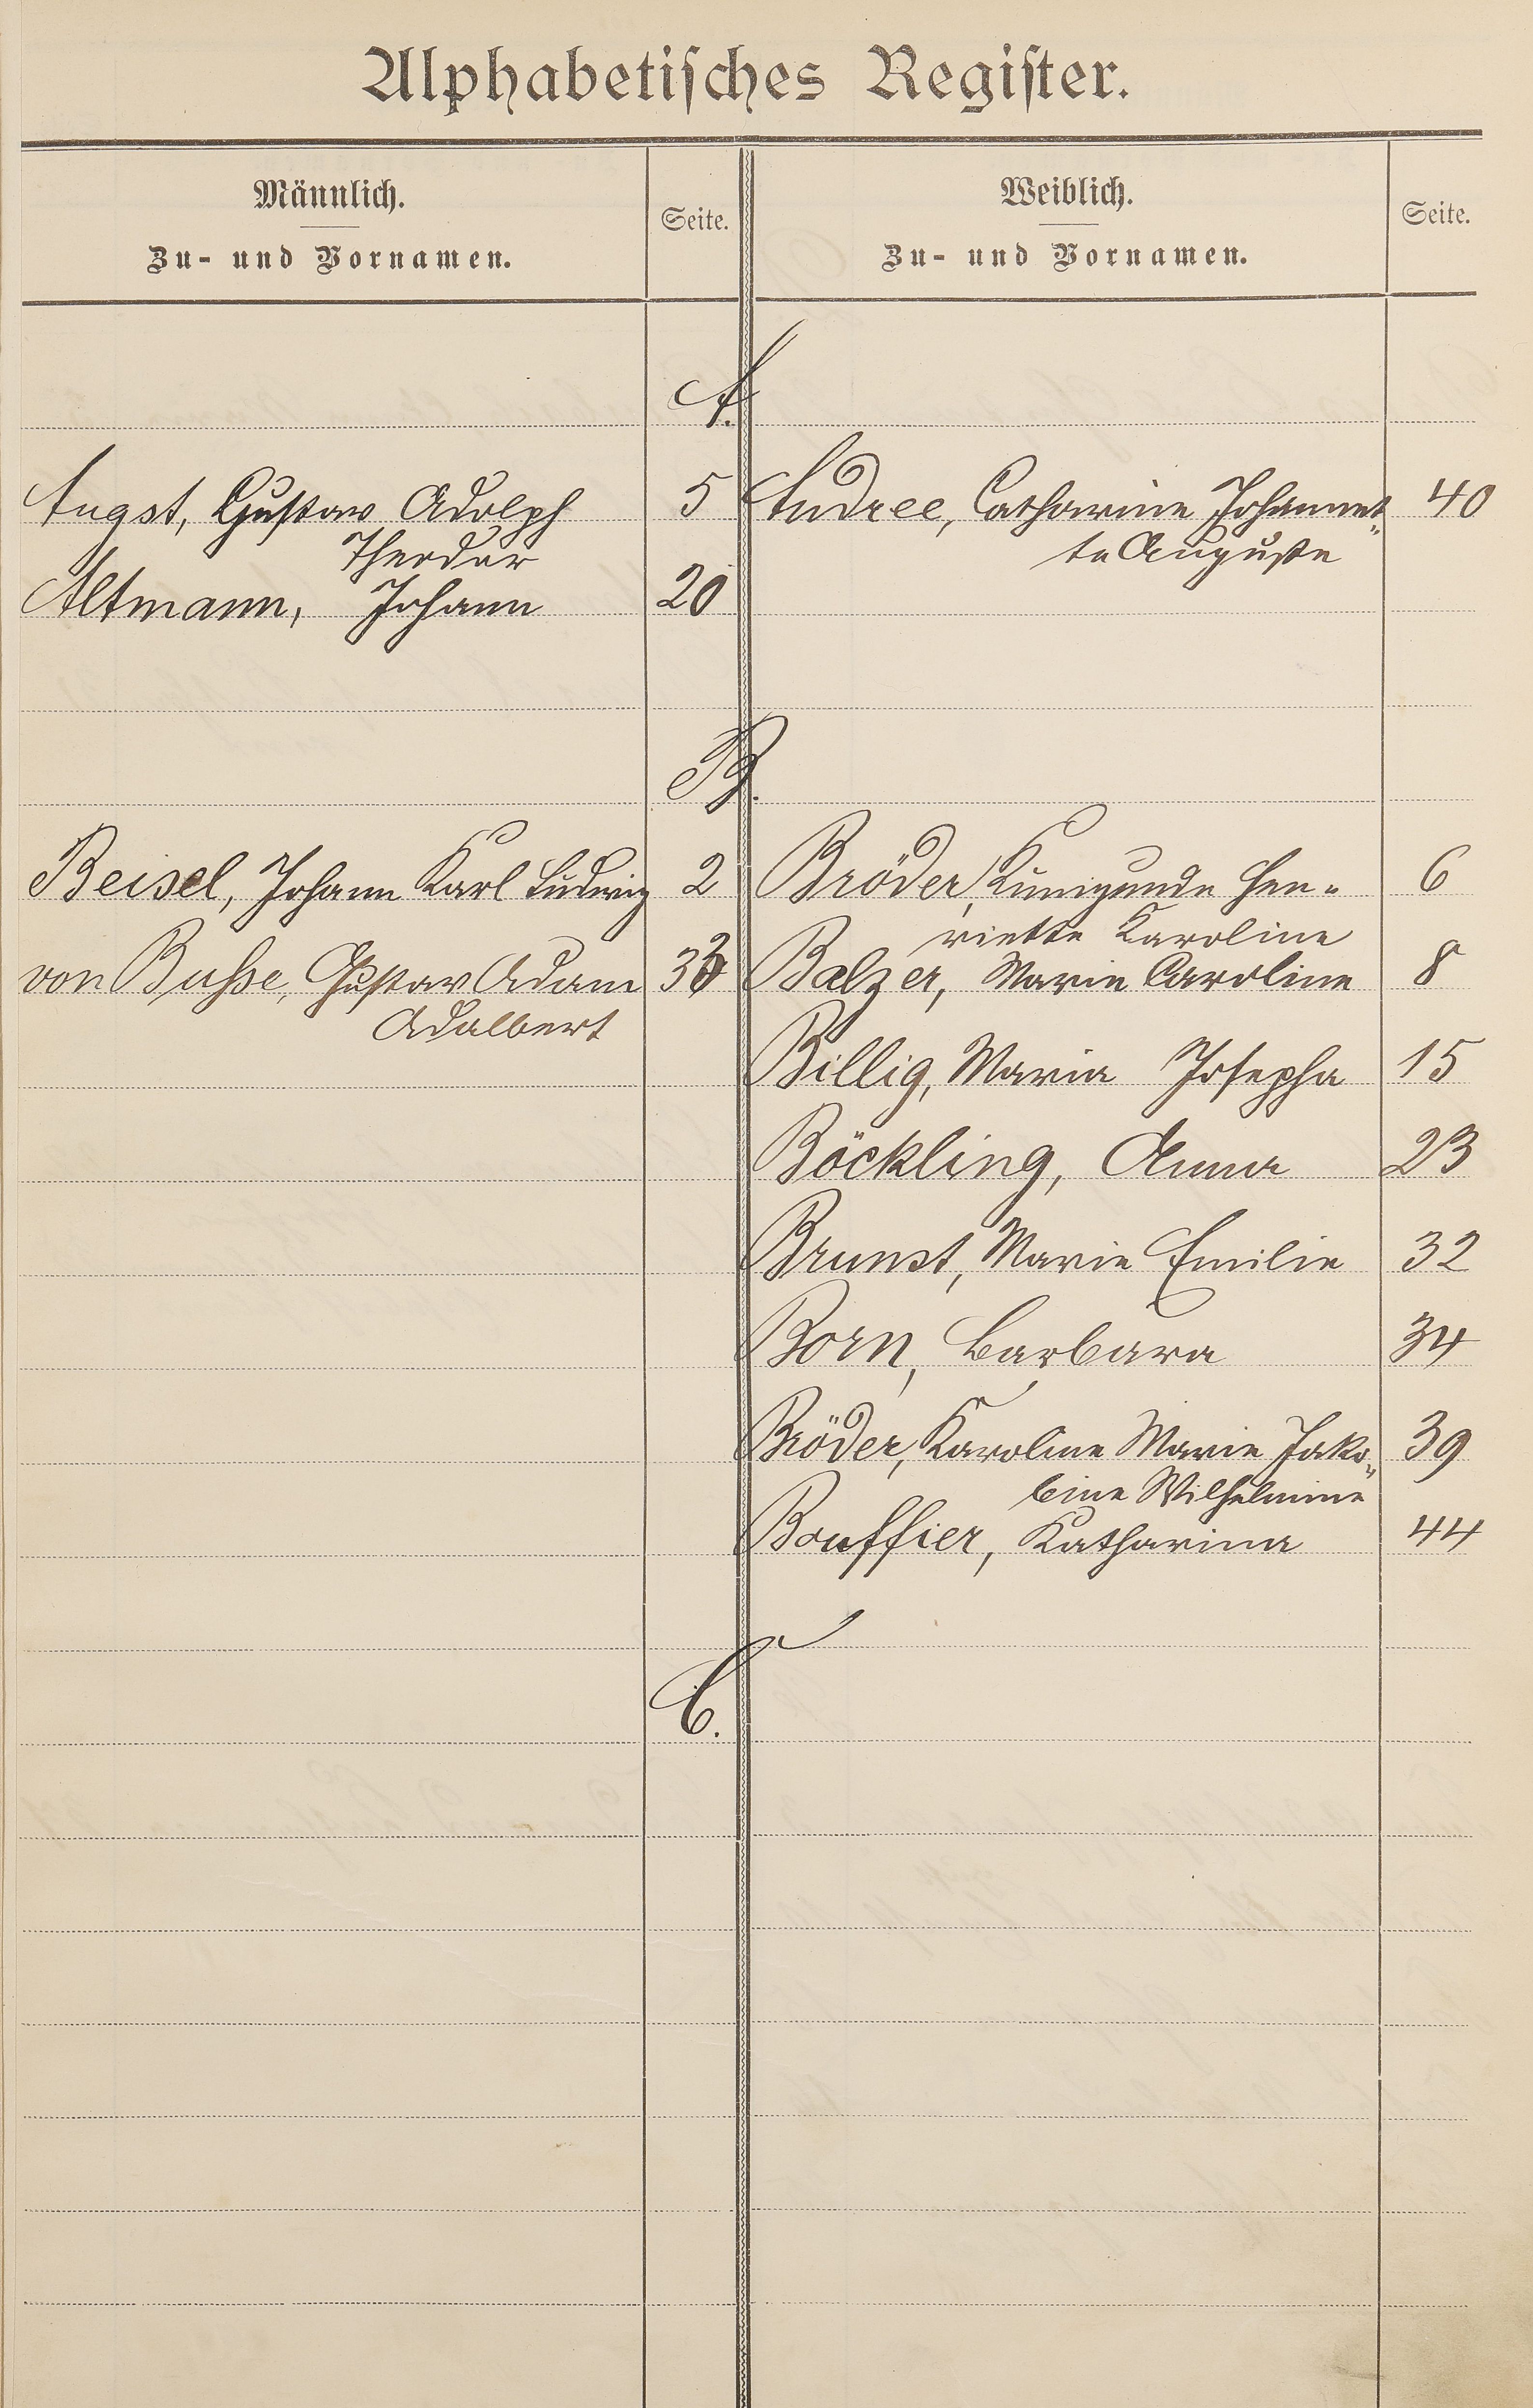 Alphabetisches Register.
Männlich.
Zu- und Vornamen.
Seite.
Weiblich.
Zu- und Vornamen.
Seite.
A.
Angst, Gustav Adolph 5
Theodor
Altmann, Johann 20
Andree, Catharine Johannet- 40
te Auguste
B.
Beisel, Johann Karl Ludwig 2
von Busse, Gustav Adam
Adalbert
Bröder, Kunigunde Hen- 6
riette Karoline
Balzer, Marie Caroline 8
Billig, Maria Josepha 15
Böckling, Anna 23
Brunst, Marie Emilie 32
Born, Barbara 34
Bröder, Karoline Marie Jako- 39
bine Wilhelmine
Bouffier, Katharina 44
C.